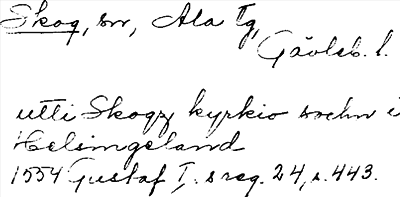 Skog, sn, Ala tg,
Gävleb. l.
utti Skogz kyrkio sochn i
Helsingeland
1554 Gustaf I:s reg. 24, s. 443.